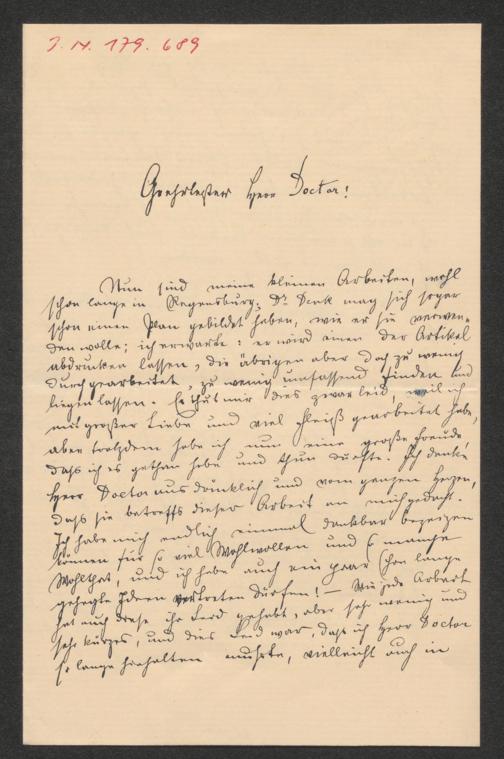 J. N. 179.689
Geehrtester Herr Doctor!
Nun sind meine kleinen Arbeiten, wohl
schon lange in Regensburg. Dr. Denk mag sich sogar
schon einen Plan gebildet haben, wie er sie verwen-
den wolle; ich erwarte: er wird einen der Artikel
abdrucken lassen, die übrigen aber doch zu wenig
durchgearbeitet, zu wenig umfassend finden und
liegen lassen. Es thut mir dies zwar leid, weil ich
mit großer Liebe und viel Fleiß gearbeitet habe,
aber trotzdem habe ich nun eine große Freude,
daß ich es gethan habe und thun durfte. Ich danke
Herr Doctor ausdrücklich und vom ganzen Herzen,
daß sie betreffs dieser Arbeit an mich gedacht.
Ich habe mich endlich einmal dankbar bezeigen
können für so viel Wohlwollen und so manche
Wohlthat, und ich habe auch ein paar schon lange
gehegte Ideen vertreten dürfen! — Wie jede Arbeit
hat auch diese ihr Leid gehabt, aber sehr wenig und
sehr kurzes, und dies Leid war, daß ich Herr Doctor
so lange hinhalten mußte, vielleicht auch in